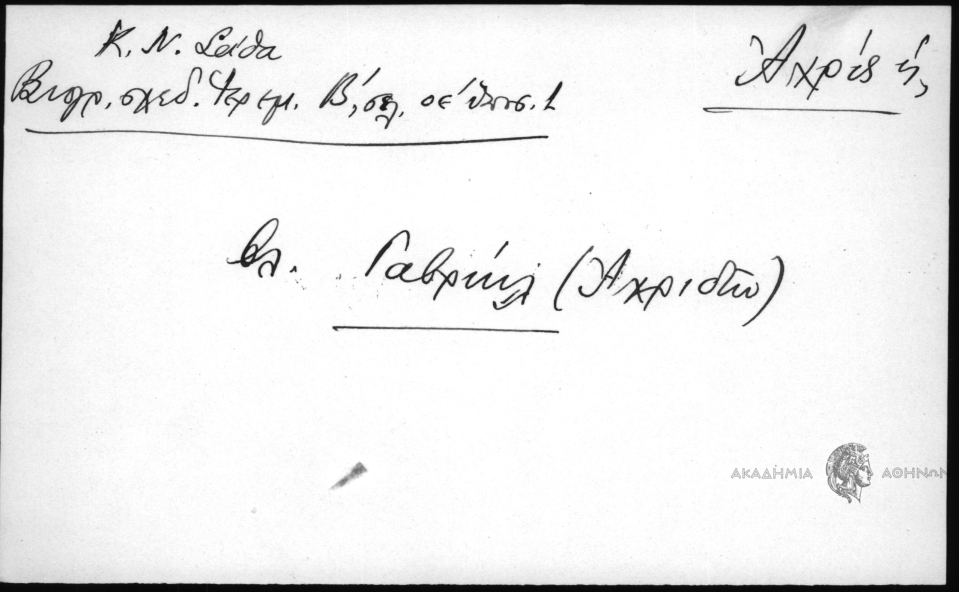 Κ. Ν. Σάθα
Βιογρ. σχεδ. Ἱερεμ. Β', σελ. οε' ὑποσ. 1
Ἀχρίς ἡ,
βλ. Γαβριήλ (Ἀχριδῶν)
ΑΚΑΔΗΜΙΑ ΑΘΗΝΩΝ